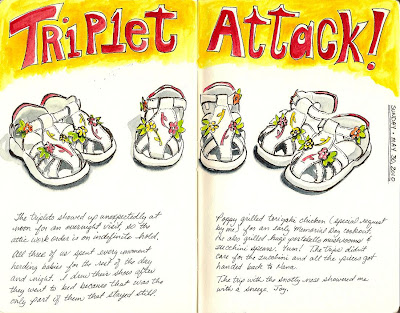 Triplet Attack!
SUNDAY • MAY 30, 2010
The triplets showed up unexpectedly at
noon for an overnight visit, so the
attic work order is on indefinite hold.
All three of us spent every moment
herding babies for the rest of the day
and night. I drew their shoes after
they went to bed because that was the
only part of them that stayed still.
Poppy grilled teriyaki chicken (special request
by me) for an early Memorial Day cookout.
He also grilled huge portobello mushrooms &
zucchini spears. Yum! The trips didn't
care for the zucchini and all the pieces got
handed back to Nana.
The trip with the snotty nose showered me
with a sneeze. Joy.